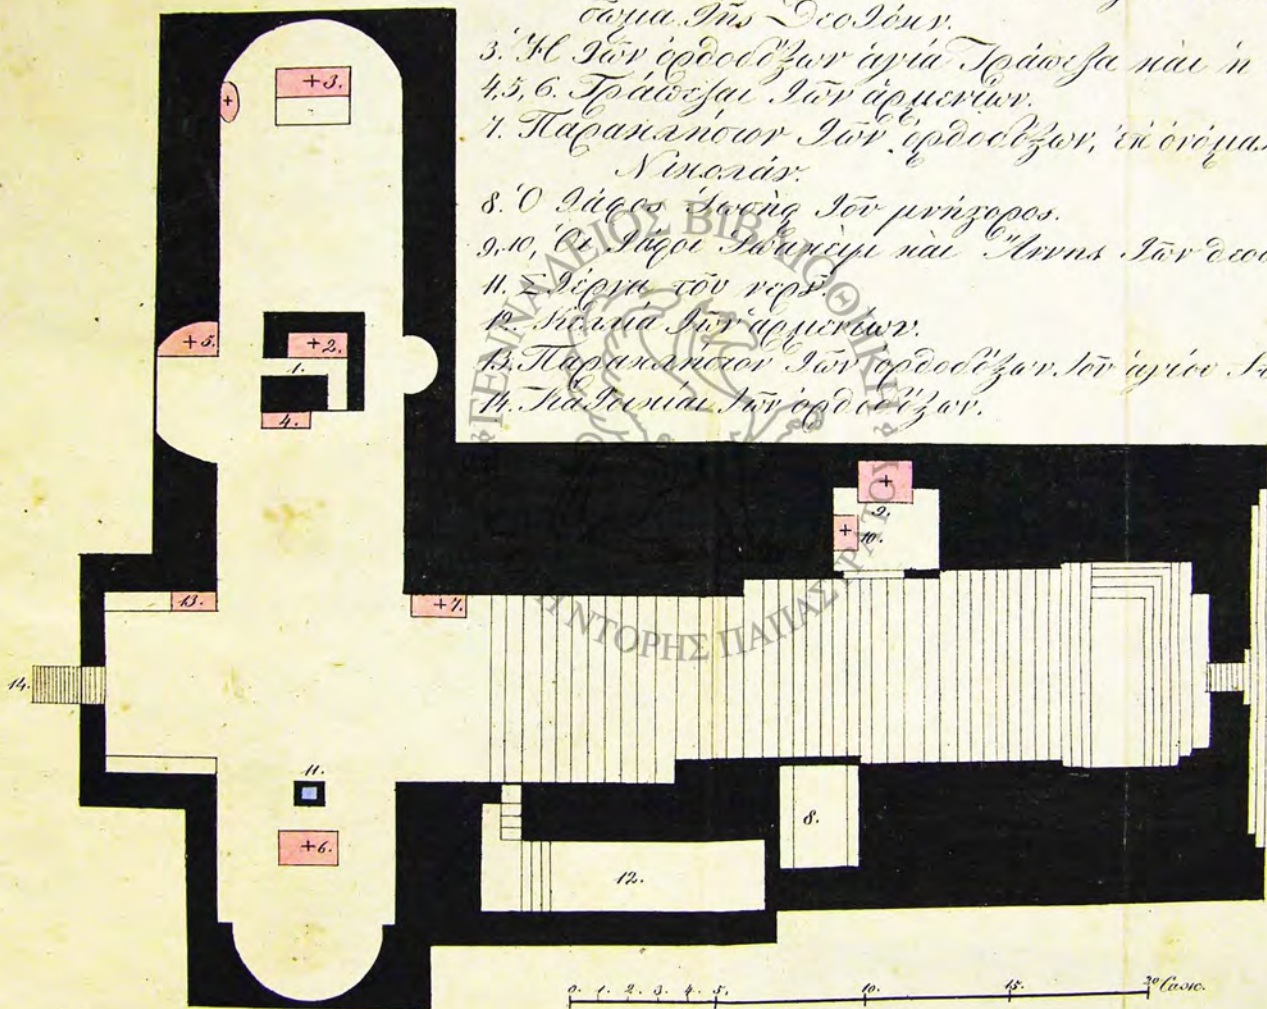 σῶμα τῆς Θεοτόκου.
3. Ἡ τῶν ὀρθοδόξων ἁγία Τράπεζα καὶ ἡ
4, 5, 6. Τράπεζαι τῶν ἀρμενίων.
7. Παρακλήσιον τῶν ὀρθοδόξων, ἐπ' ὀνόματι
Νικολάου.
8. Ὁ τάφος Ἰωσὴφ τοῦ μνήστορος.
9, 10, Οἱ Τάφοι Ἰωακεὶμ καὶ Ἄννης τῶν
11. Στέρνα τοῦ νεροῦ.
12. τῶν ἀρμενίων.
13. Παρακλήσιον τῶν ὀρθοδόξων τοῦ ἁγίου
14. Κατοικίαι τῶν ὀρθοδόξων.
ΓΕΝΝΑΔΕΙΟΣ ΒΙΒΛΙΟΘΗΚΗ
+3.
+
+5.
+2.
1.
4.
+
9.
+
10.
13.
+7.
14.
11.
8.
+6.
12.
0. 1. 2. 3. 4. 5. 10. 15. 20 Саж.